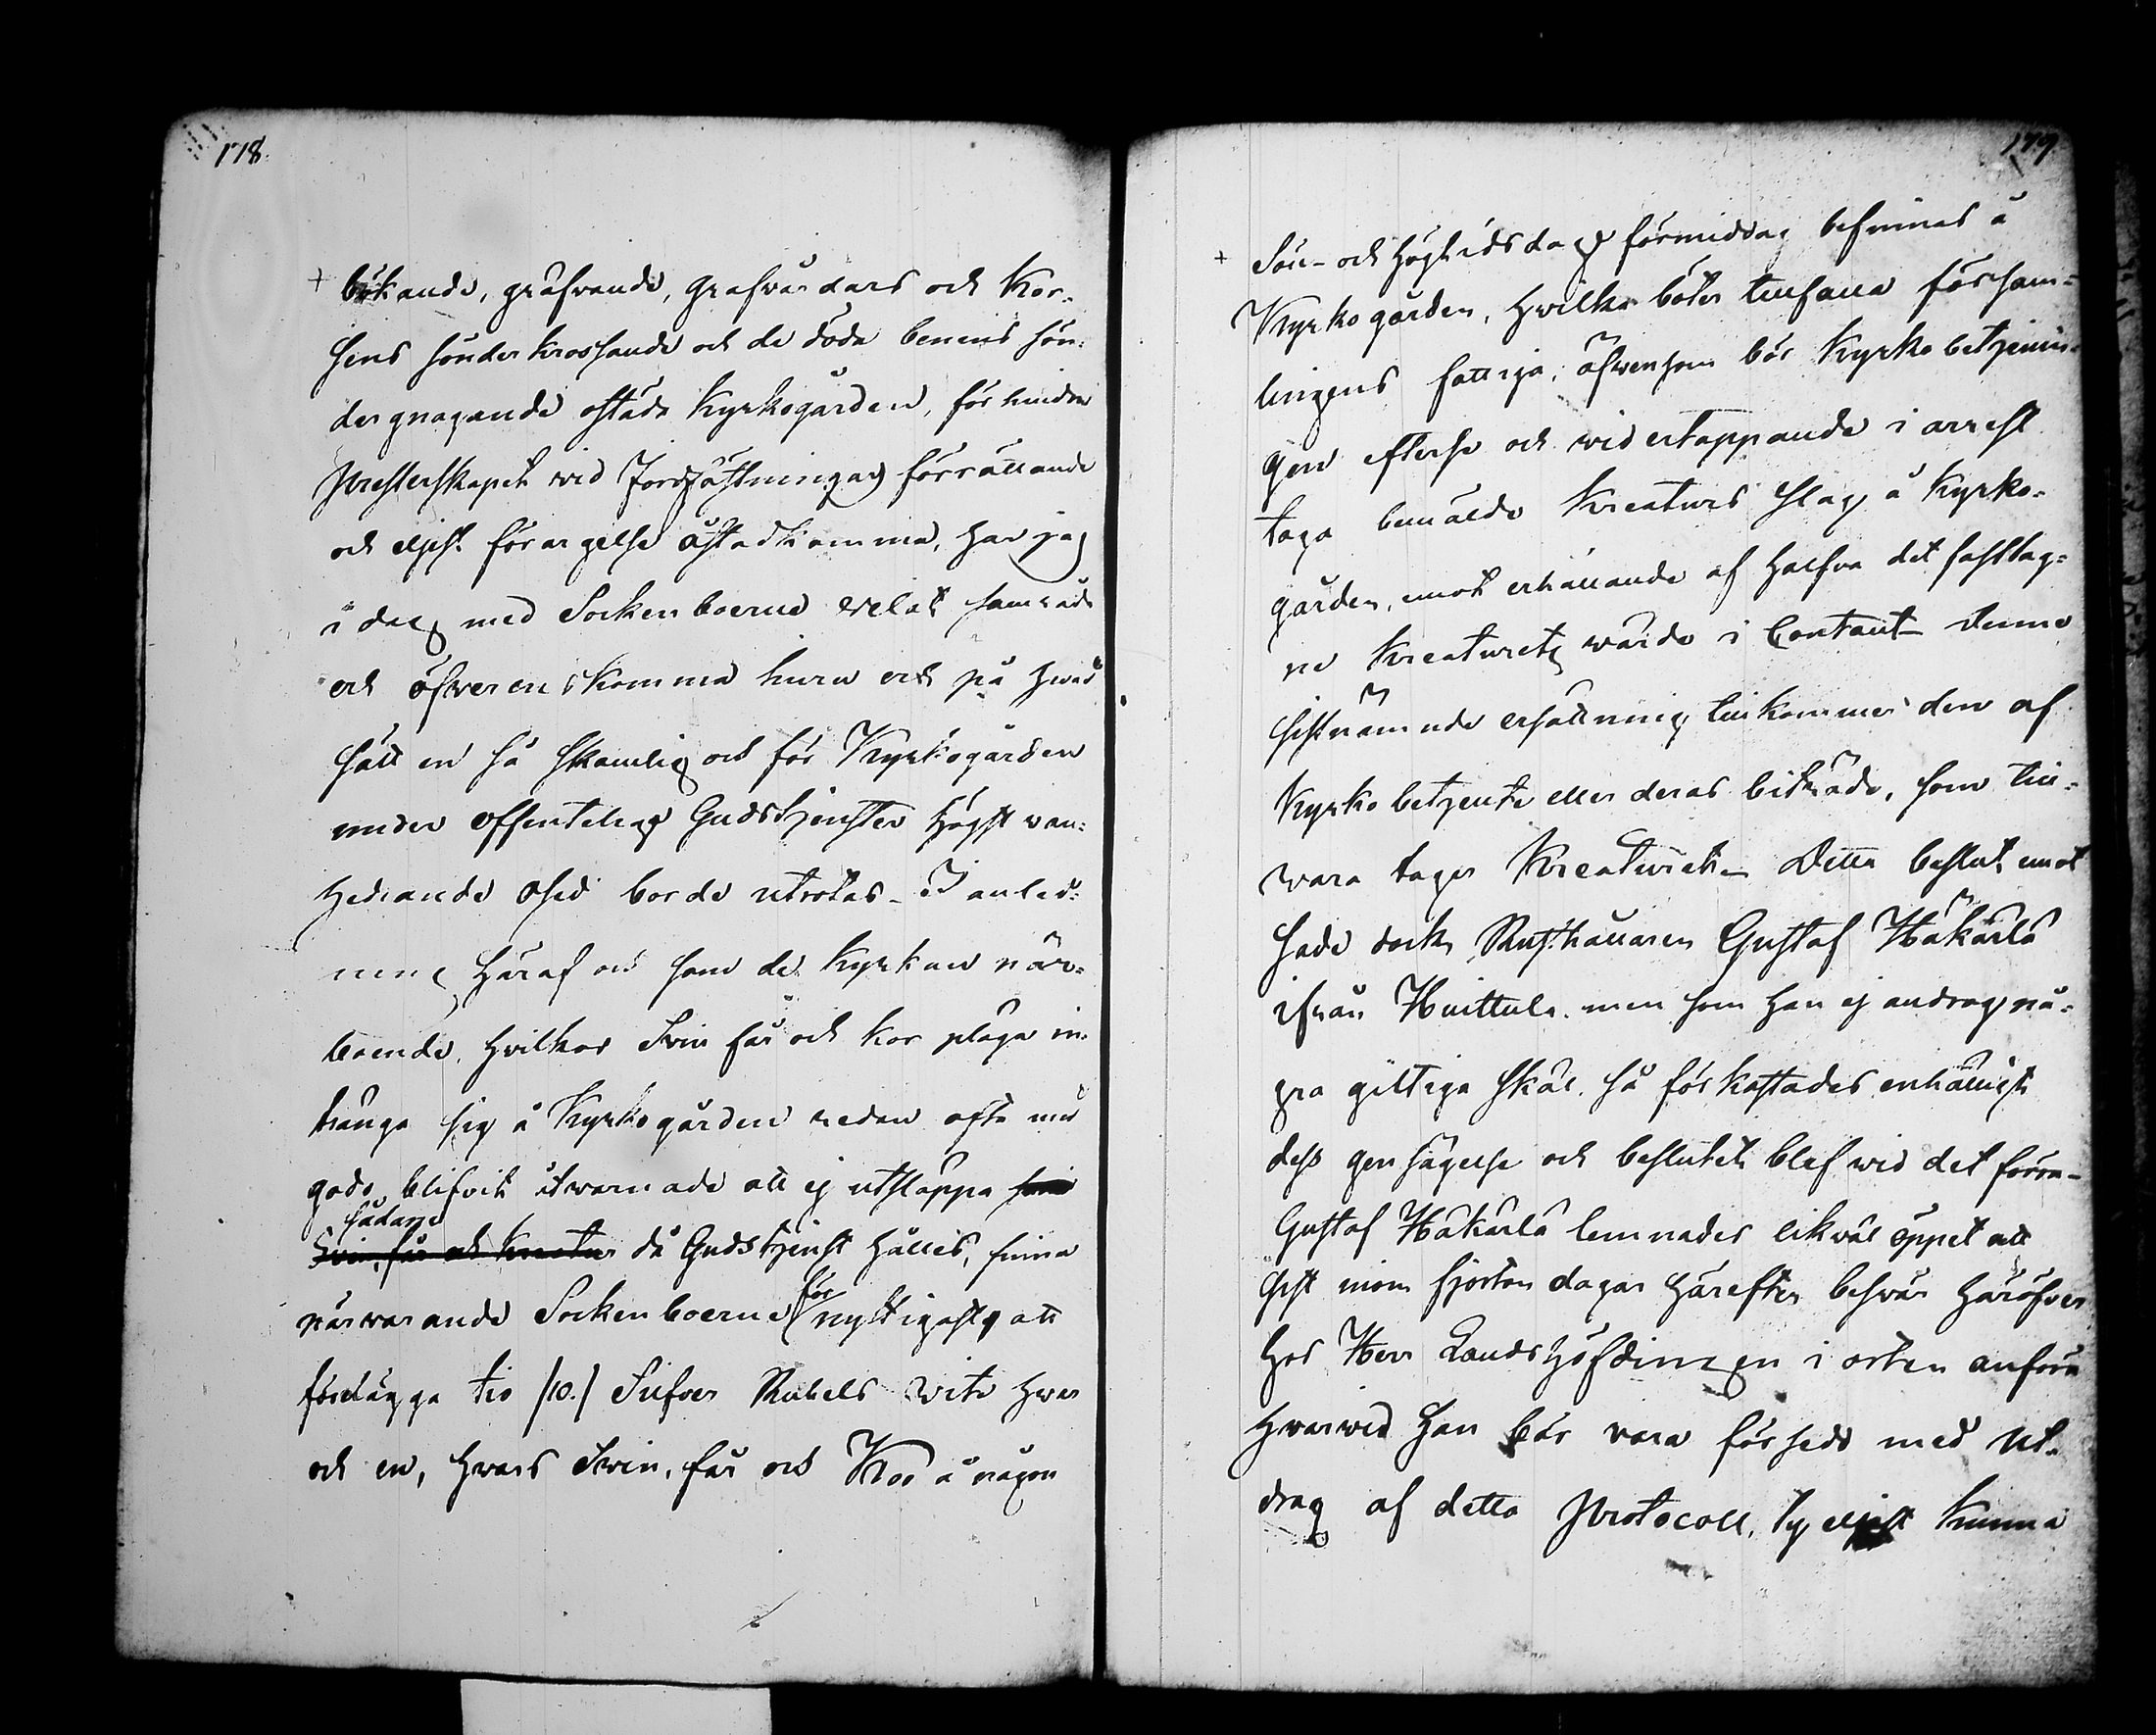 178.
+ bökande, gräfvande, grafvårdars och Kor-
sens sönderkrossande och de döda benens sön-
dergnagande ostäda Kyrkogården, förhindra
Presterskapet vid Jordfästningars förrättande
och eljest förargelse åstadkomma, har jag
i dag med Sockenboerne velat samråda
och öfverenskomma huru och på hvad
sätt en så skamlig och för Kyrkogården
under offentelige Gudstjenster högst van-
hedrande osed borde utrotas - I anled-
ning häraf och som de Kyrkan när-
boende, hvilkas Svin får och kor pläga in-
tränga sig å Kyrkogården redan ofta med
godo blifvit åtvarnade att ej utsläppa
sådane
Svin, får och kreatur då Gudstjenst hålles, finna
för
närvarande Sockenboerne nyttigast att
förelägga tio /10./ Silfver Rubels vite hvar
och en, hvars Svin, får och Koo å någon
179.
+ Sön- och Högtidsdags förmiddag befinnas å
Kyrkogården, hvilka böter tillfalla försam-
lingens fattiga; äfvensom bör Kyrkobetjenin-
gen efterse och vid ertappande i arrest
taga bemälde Kreaturs slag å Kyrko-
gården, emot erhållande af halfva det fasttag-
ne Kreaturets värde i Contant - Denne
sistnämnde ersättning tillkommer den af
Kyrkobetjente eller deras biträde, som till-
vara tager Kreaturet - Detta beslut emot
sade dock Rusthållaren Gustaf Häkärlä
ifrån Huittula. men som han ej andrag nå-
gra giltiga skäl. så förkastades enhälligt
dess gensägelse och beslutet blef vid det förra -
Gustaf Häkärlä lemnades likväl öppet att
sist inom fjorton dagar härefter besvär häröfver
hos Herr Landshöfdingen i orten anföra
hvarvid han bör vara försedd med Ut-
drag af detta Protocoll, ty eljest kunna